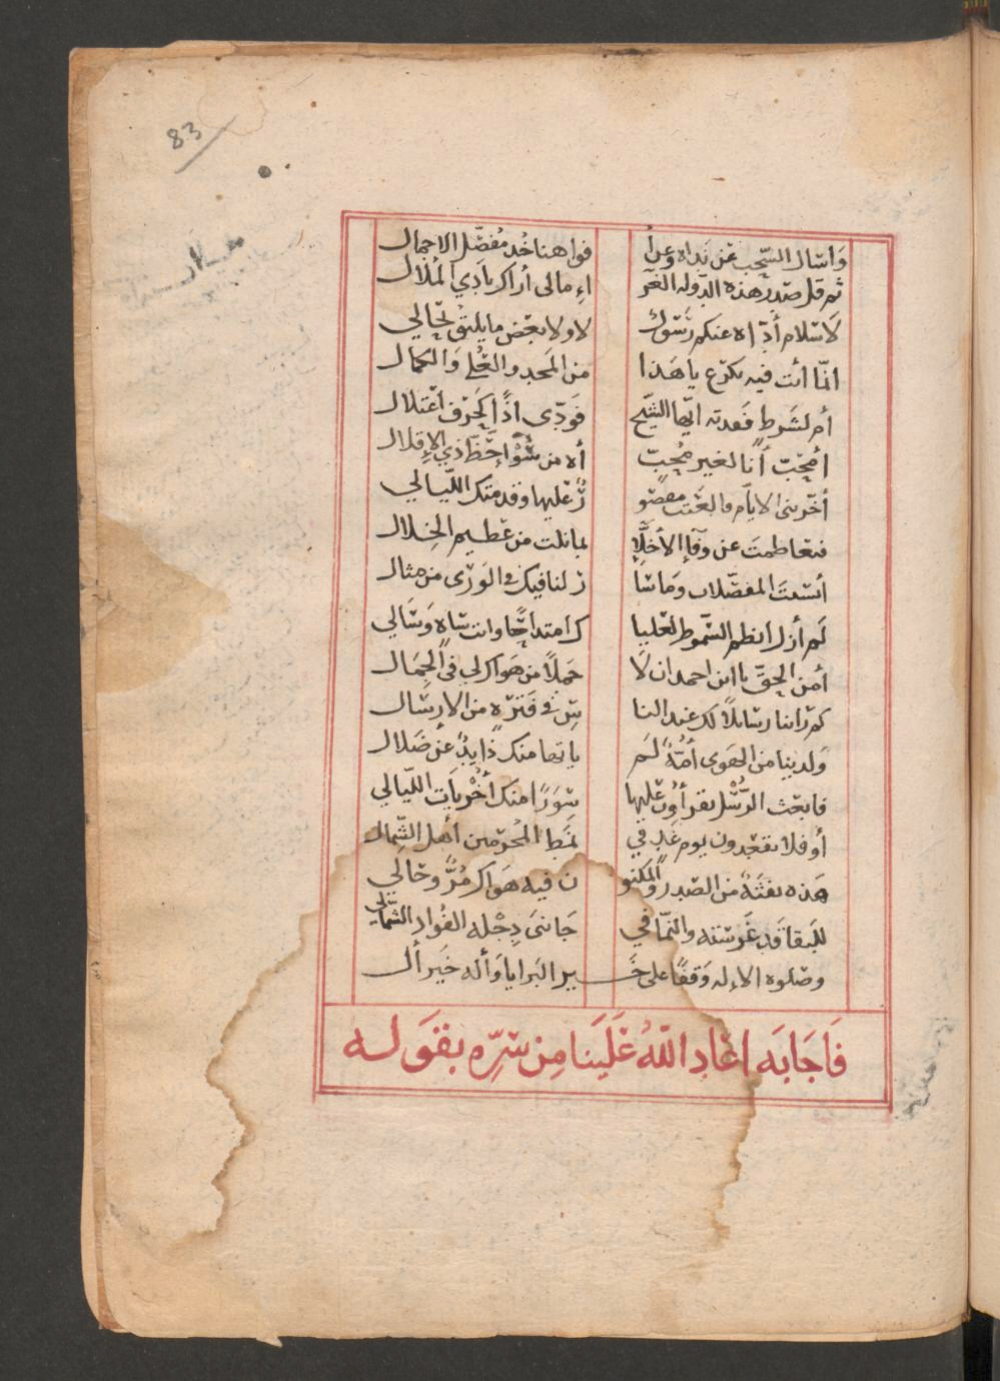 83
وَاسَال السّحب عن نَداه وعن أ فواهنا خُد مُفصّل الاجمال
ثم قل صَدر هذه الدّوله الغر اءِ مالى أراك بادي الملال
لاسلام أدّاه عنكم رسَول لا ولا بعض ما يليق بحَالي
انّما أنت فيه بكرَع يا هَذا من المَجد والعُلى وَالكمال
أم لشَرط فقدته ايّها الشيّخ فودّى اذًا كحَرف اعتلال
أمحِبّ أنا لغير محُِبّ أه من سُوْٓ حَظّ ذي الاِقلال
أخّرتنى الايّام والعَتب مقصَو رٌ عَليها وقد متك اللّيالي
فتعاظمتَ عن وفآِ الأخلّآ بما نلت من عَظيم الخِلال
أنسَيتَ المفضّلات وَما سَا رَ لنا فيك فى الوَرَى من مثال
لَم أزل انظم السّموط لعَليا ك امتداحًا وانت سَاهٍ وَسَالي
أمن الحقّ يا ابن احمد ان لَا حَملاً من هَواك لي فى الحِمَال
كم قرانا رسَايلاً لك عند النا سِ فى فَترَةٍ من الارسَال
وَلدينا من الهَوى أُمّةٌ لَم ياتها منك ذايدٌ عن ضَلال
فابعَث الرُّسْل يقرأوُن عليها سُوَرًا منك أُخْريَات اللّيالي
أو فلا تقعدون يوم غدٍ في نمَط المُحرمين أهل الشّمال
هَذه نفثَةٌ من الصّدر والمكنو ن فيه هَواك مُرٌّ وحَالي
للبَقا قد غَرستَه والنّما في جَانبَى دِجْله الفُواد الشّمالي
وصَلوه الاِله وَقفًا على خَـ ـير البَرايا وَأله خَير أل
فَاَجَابَه اعَاد اللّٰهُ عَلَينَا مِن سِرِّه بقَولـه